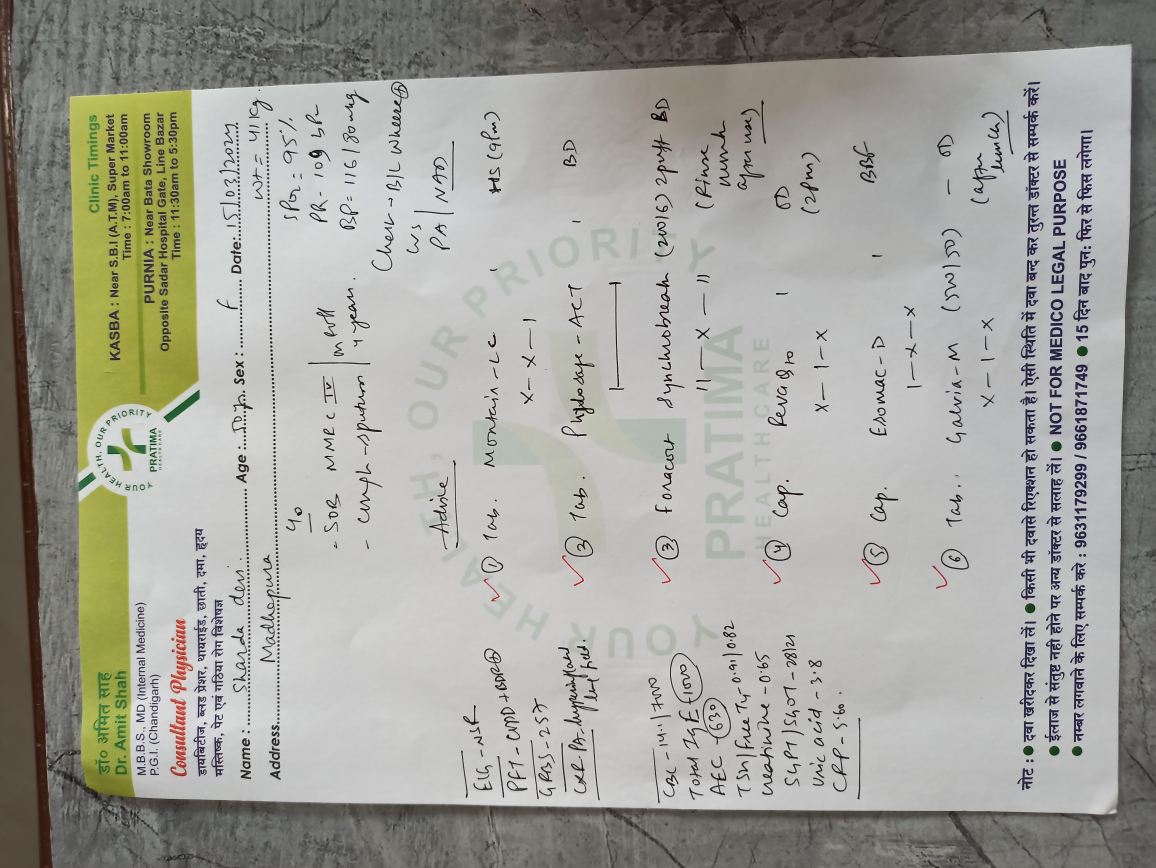 डॉ० अमित साह
Dr. Amit Shah
M.B.B.S., MD (Internal Medicine)
P.G.I. (Chandigarh)
Consultant Physician
डायबिटीज, ब्लड प्रेशर, थायराईड, छाती, दमा, हृदय
मस्तिष्क, पेट एवं गठिया रोग विशेषज्ञ
YOUR HEALTH, OUR PRIORITY
PRATIMA
HEALTHCARE
Clinic Timings
KASBA : Near S.B.I (A.T.M), Super Market
Time : 7:00am to 11:00am
PURNIA : Near Bata Showroom
Opposite Sadar Hospital Gate, Line Bazar
Time : 11:30am to 5:30pm
Name : Sharda devi Age : 50yr Sex : F Date: 15/03/2024
Address Madhepura
Wt = 41 Kg
SPO2 = 95%
PR - 109 bpm
BP = 116/80 mmHg
Chest → B/L Wheeze ⊕
PA | NAD
c/o
- SOB MMRC IV
- cough - sputum 4 years
ECG - NSR
PFT - + BDR ⊕
GRBS - 257
CXR PA -
CBC - 14.1/7000
Total IgE > 1000
AEC - 630
TSH/Free T4 - 0.91/0.82
Creatinine - 0.65
SGPT/SGOT - 28/21
Uric acid - 3.8
CRP - 5.60
Advice
① Tab. Montair-LC 1 HS (9pm)
X - X - 1
② Tab. Phylosafe-ACT 1 BD
③ Foracort Synchrobreath (200/6) 2 puff BD
11 - X - 11 (Rinse mouth after use)
④ Cap. RevaQ10 1 OD
X - 1 - X (2pm)
⑤ Cap. Esomac-D 1 BBF
1 - X - X
⑥ Tab. Galvin-M (50/500) - OD
X - 1 - X (after lunch)
YOUR HEALTH, OUR PRIORITY
PRATIMA
HEALTHCARE
नोट : ● दवा खरीदकर दिखा लें। ● किसी भी दवासे रिएक्शन हो सकता है। ऐसी स्थिति में दवा बन्द कर तुरन्त डॉक्टर से सम्पर्क करें।
● ईलाज से संतुष्ट नही होने पर अन्य डॉक्टर से सलाह लें। ● NOT FOR MEDICO LEGAL PURPOSE
● नम्बर लगवाने के लिए सम्पर्क करे : 9631179299 / 9661871749 ● 15 दिन बाद पुन: फिर से फिस लगेगा।